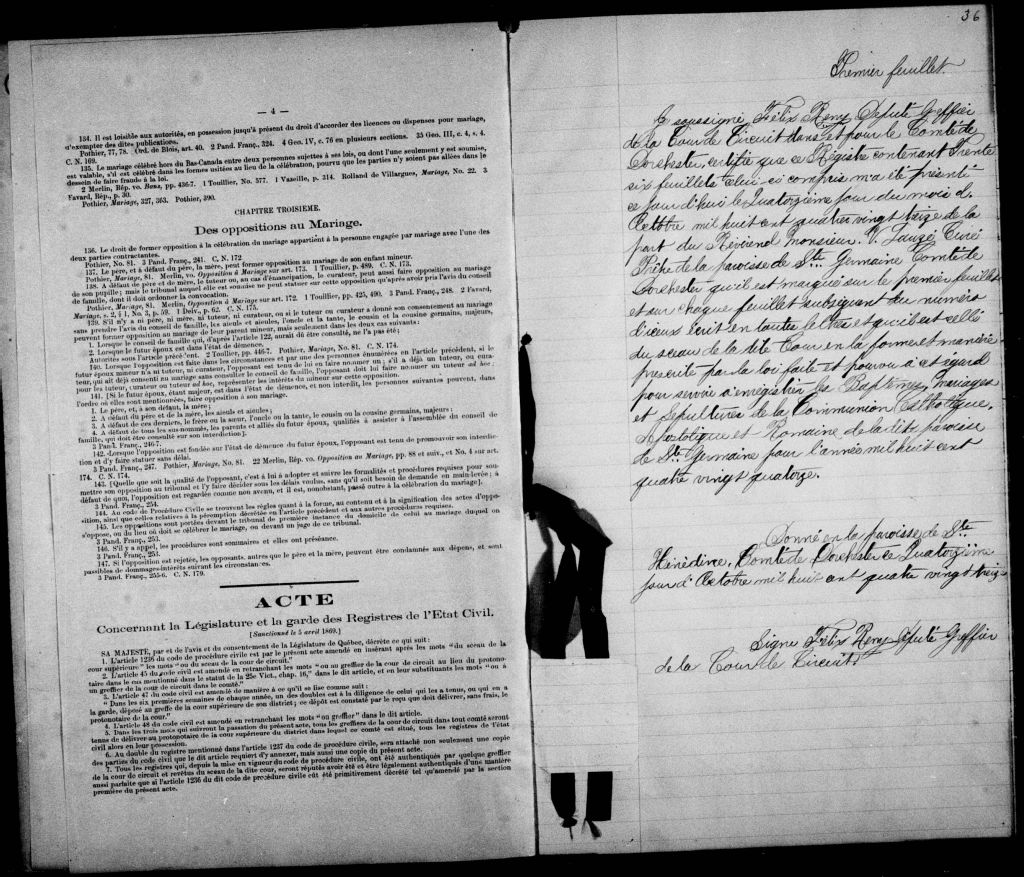 — 4 —
134. Il est loisible aux autorités, en possession jusqu'à présent du droit d'accorder des licences ou dispenses pour mariage,
d'exempter des dites publications.
Pothier, 77, 78. Ord. de Blois, art. 40. 2 Pand. Franç., 324. 4 Geo. IV, c. 76 en plusieurs sections. 25 Geo. III, c. 4, s. 4.
C. N. 169.
135. Le mariage célébré hors du Bas-Canada entre deux personnes sujettes à ses lois, ou dont l'une seulement y est soumise,
est valable, s'il est célébré dans les formes usitées au lieu de la célébration, pourvu que les parties n'y soient pas allées dans le
dessein de faire fraude à la loi.
2 Merlin, Rép. vo. Bans, pp. 436-7. 1 Touillier, No. 577. 1 Vazeille, p. 314. Rolland de Villargues, Mariage, No. 22. 3
Favard, Rép., p. 30.
Pothier, Mariage, 327, 363. Pothier, 390.
CHAPITRE TROISIEME.
Des oppositions au Mariage.
136. Le droit de former opposition à la célébration du mariage appartient à la personne engagée par mariage avec l'une des
deux parties contractantes.
Pothier, No. 81. 3 Pand. Franç., 241. C. N. 172
137. Le père, et à défaut du père, la mère, peut former opposition au mariage de son enfant mineur.
Pothier, Mariage, 81. Merlin, vo. Opposition à Mariage sur art. 173. 1 Touillier, p. 489. C. N. 173.
138. A défaut de père et de mère, le tuteur, ou, au cas d'émancipation, le curateur, peut aussi faire opposition au mariage
de son pupille; mais le tribunal auquel elle est soumise ne peut statuer sur cette opposition qu'après avoir pris l'avis du conseil
de famille, dont il doit ordonner la convocation.
Pothier, Mariage, 81. Merlin, Opposition à Mariage sur art. 172. 1 Touillier, pp. 425, 490. 3 Pand. Franç., 248. 2 Favard,
Mariage, s. 2, § 1, No. 3, p. 59. 1 Delv., p. 62. C. N. 175.
139. S'il n'y a ni père, ni mère, ni tuteur, ni curateur, ou si le tuteur ou curateur a donné son consentement au mariage
sans prendre l'avis du conseil de famille, les aïeuls et aïeules, l'oncle et la tante, le cousin ou la cousine germains, majeurs,
peuvent former opposition au mariage de leur parent mineur, mais seulement dans les deux cas suivants:
1. Lorsque le conseil de famille qui, d'après l'article 122, aurait dû être consulté, ne l'a pas été;
2. Lorsque le futur époux est dans l'état de démence.
Autorités sous l'article précédent. 2 Toullier, pp. 446-7. Pothier, Mariage, No. 81. C. N. 174.
140. Lorsque l'opposition est faite dans les circonstances et par une des personnes énumérées en l'article précédent, si le
futur époux mineur n'a ni tuteur, ni curateur, l'opposant est tenu de lui en faire nommer un; s'il a déjà un tuteur, ou cura-
teur, qui ait déjà consenti au mariage sans consulter le conseil de famille, l'opposant doit lui faire nommer un tuteur ad hoc;
pour les tuteur, curateur ou tuteur ad hoc, représenter les intérêts du mineur sur cette opposition.
141. [Si le futur époux, étant majeur, est dans l'état de démence, et non interdit, les personnes suivantes peuvent, dans
l'ordre où elles sont mentionnées, faire opposition à son mariage.
1. Le père, et, à son défaut, la mère;
2. A défaut du père et de la mère, les aïeuls et aïeules;
3. A défaut de ces derniers, le frère ou la sœur, l'oncle ou la tante, le cousin ou la cousine germains, majeurs;
4. A défaut de tous les sus-nommés, les parents et alliés du futur époux, qualifiés à assister à l'assemblée du conseil de
famille, qui doit être consulté sur son interdiction].
3 Pand. Franç., 246-7.
142. Lorsque l'opposition est fondée sur l'état de démence du futur époux, l'opposant est tenu de promouvoir son interdic-
tion et d'y faire statuer sans délai.
3 Pand. Franç., 247. Pothier, Mariage, No. 81. 22 Merlin, Rép. vo. Opposition au Mariage, pp. 88 et suiv., et No. 4 sur art.
174. C. N. 174.
143. [Quelle que soit la qualité de l'opposant, c'est à lui à adopter et suivre les formalités et procédures requises pour sou-
mettre son opposition au tribunal et l'y faire décider sous les délais voulus, sans qu'il soit besoin de demande en main-levée; à
défaut de quoi, l'opposition est regardée comme non avenue, et il est, nonobstant, passé outre à la célébration du mariage].
3 Pand. Franç., 254.
144. Au code de Procédure Civile se trouvent les règles quant à la forme, au contenu et à la signification des actes d'oppo-
sition, ainsi que celles relatives à la péremption décrétée en l'article précédent et aux autres procédures requises.
145. Les oppositions sont portées devant le tribunal de première instance du domicile de celui au mariage duquel on
s'oppose, ou du lieu où doit se célébrer le mariage, ou devant un juge de ce tribunal.
3 Pand. Franç., 253.
146. S'il y a appel, les procédures sont sommaires et elles ont préséance.
3 Pand. Franç., 253.
147. Si l'opposition est rejetée, les opposants, autres que le père et la mère, peuvent être condamnés aux dépens, et sont
passibles de dommages-intérêts suivant les circonstances.
3 Pand. Franç., 255-6. C. N. 179.
ACTE
Concernant la Législature et la garde des Registres de l'Etat Civil.
[Sanctionné le 5 avril 1869.]
SA MAJESTE, par et de l'avis et du consentement de la Législature de Québec, décrète ce qui suit:
1. L'article 1236 du code de procédure civile est par le présent acte amendé en insérant après les mots "du sceau de la
cour supérieure" les mots "ou du sceau de la cour de circuit."
2. L'article 45 du code civil est amendé en retranchant les mots "ou au greffier de la cour de circuit au lieu du protono-
taire dans le cas mentionné dans le statut de la 25e Vict., chap. 16," dans le dit article, et en leur substituant les mots "ou à
un greffier de la cour de circuit dans le comté."
3. L'article 47 du code civil est amendé de manière à ce qu'il se lise comme suit:
"Dans les six premières semaines de chaque année, un des doubles est à la diligence de celui qui les a tenus, ou qui en a
la garde, déposé au greffe de la cour supérieure de son district; ce dépôt est constaté par le reçu que doit délivrer, sans frais, le
protonotaire de la cour."
4. L'article 48 du code civil est amendé en retranchant les mots "ou greffier" dans le dit article.
5. Dans les trois mois qui suivront la passation du présent acte, tous les greffiers de la cour de circuit dans tout comté seront
tenus de délivrer au protonotaire de la cour supérieure du district dans lequel ce comté est situé, tous les registres de l'état
civil alors en leur possession.
6. Au double du registre mentionné dans l'article 1237 du code de procédure civile, sera attaché non seulement une copie
des parties du code civil que le dit article requiert d'y annexer, mais aussi une copie du présent acte.
7. Tous les registres qui, depuis la mise en vigueur du code de procédure civile, ont été authentiqués par quelque greffier
de la cour de circuit et revêtus du sceau de la dite cour, seront réputés avoir été et être légalement authentiqués d'une manière
aussi parfaite que si l'article 1236 du dit code de procédure civile eût été primitivement décrété tel qu'amendé par la section
première du présent acte.
36
Premier feuillet.
Je soussigné Félix Remy Député Greffier
de la Cour de Circuit dans et pour le Comté de
Dorchester, certifie que ce Régistre contenant Trente
six feuillets celui-ci compris m'a été présenté
ce jour d'hui le Quatorzième jour du mois d.
Octobre mil huit cent quatre vingt treize de la
part du Révérend Monsieur. V. Lauzé Curé
Prêtre de la paroisse de Ste Germaine Comté de
Dorchester qu'il est marqué sur le premier feuillet
et sur chaque feuillet subséquent du numéro
d'iceux écrit en toutes lettres et qu'il est scellé
du sceau de la dite Cour en la forme et manière
prescrite par la loi faite et pourvu à cet égard
pour servir à enrégistrer les Baptêmes, Mariages
et Sépultures de la Communion Catholique,
Apostolique et Romaine de la dite paroisse
de Ste Germaine pour l'année mil huit cent
quatre vingt quatorze.
Donné en la paroisse de Ste
Hénédine, Comté de Dorchester ce Quatorzième
jour d'Octobre mil huit cent quatre vingt treize
Signé Félix Remy Député Greffier
de la Cour de Circuit